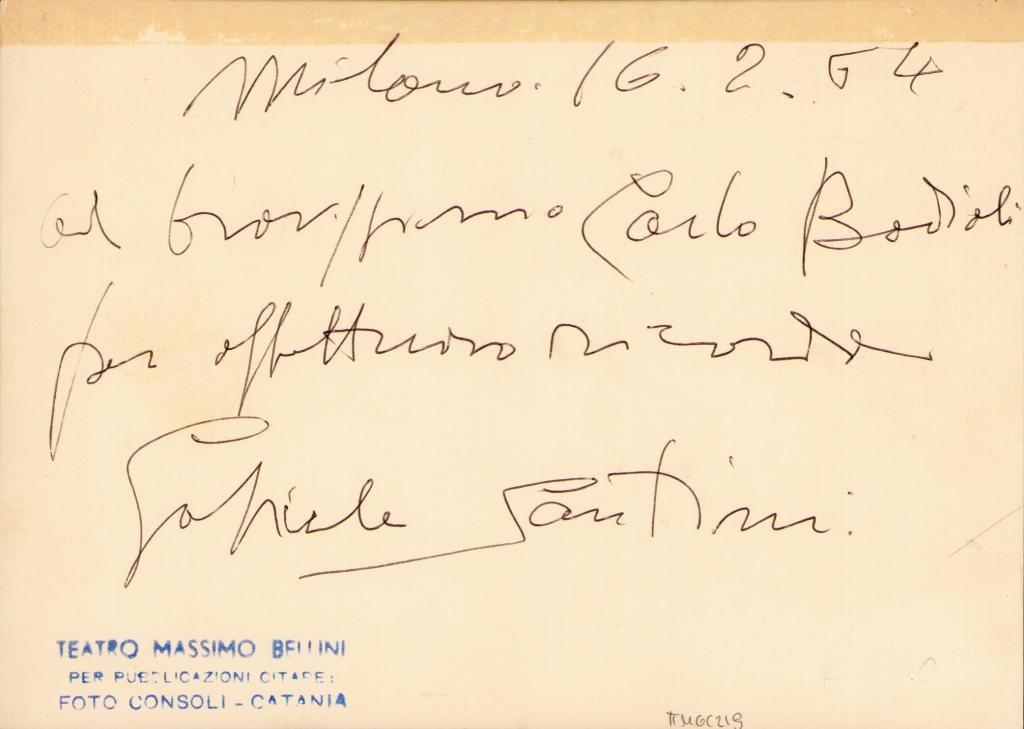 Milano. 16. 2. 54
al bravissimo Carlo Badioli
per affettuoso ricordo
Gabriele Santini.
TEATRO MASSIMO BELLINI
PER PUBBLICAZIONI CITARE:
FOTO CONSOLI - CATANIA